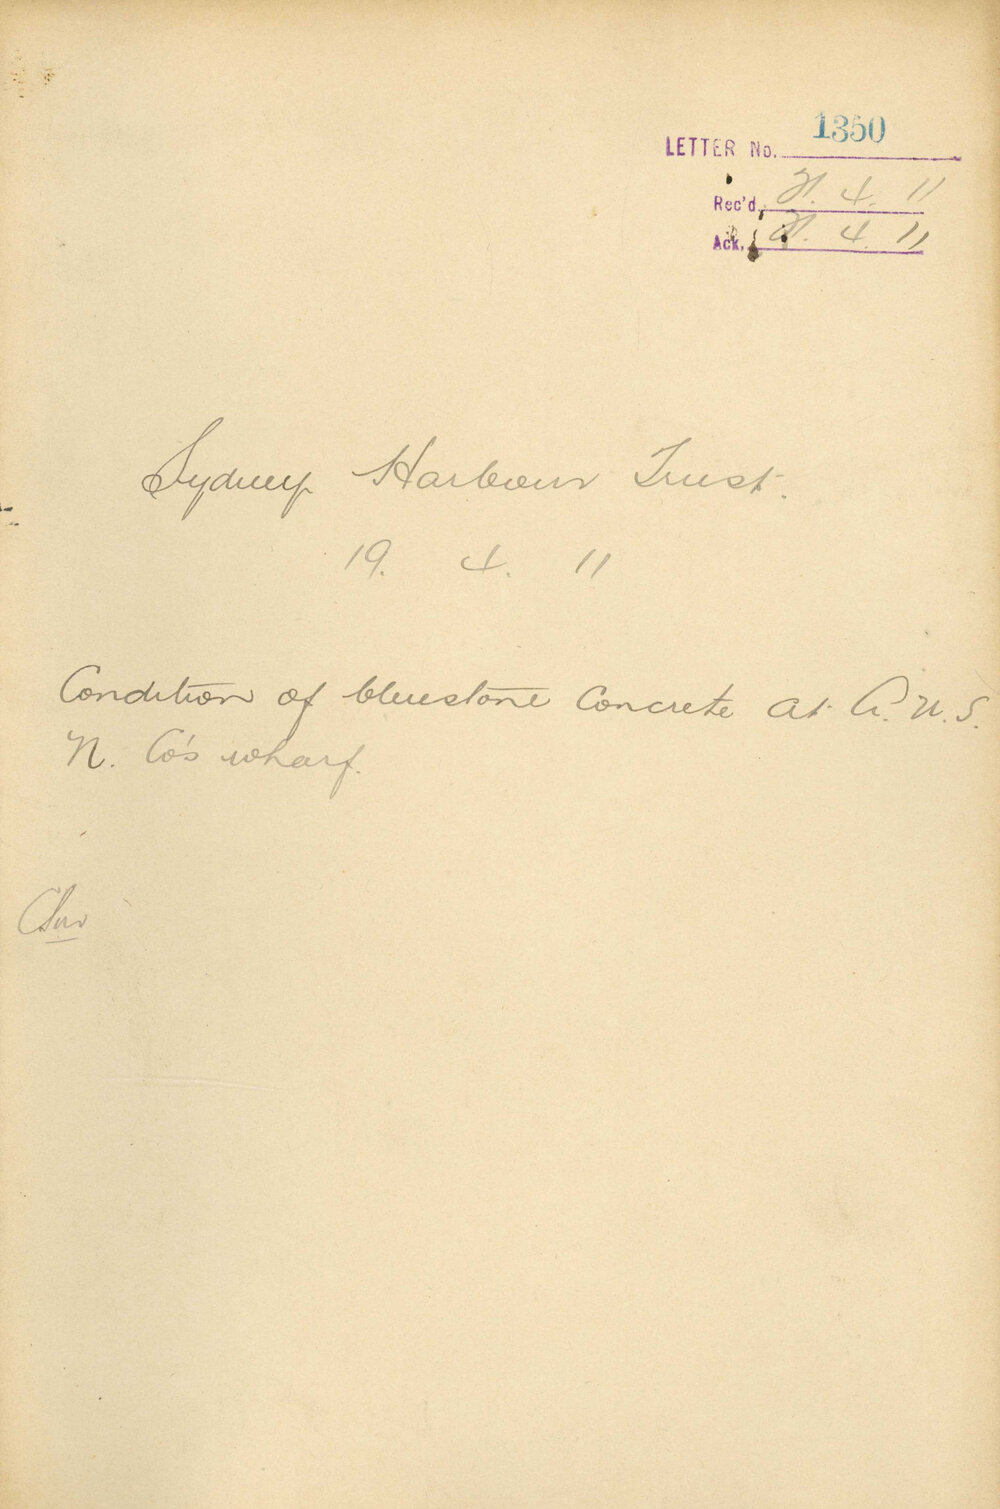 LETTER No. 1350
Rec'd, 21. 4. 11
Ack. 21. 4. 11
Sydney Harbour Trust.
19. 4. 11
Condition of bluestone concrete at A.U.S.
N. Co's wharf.